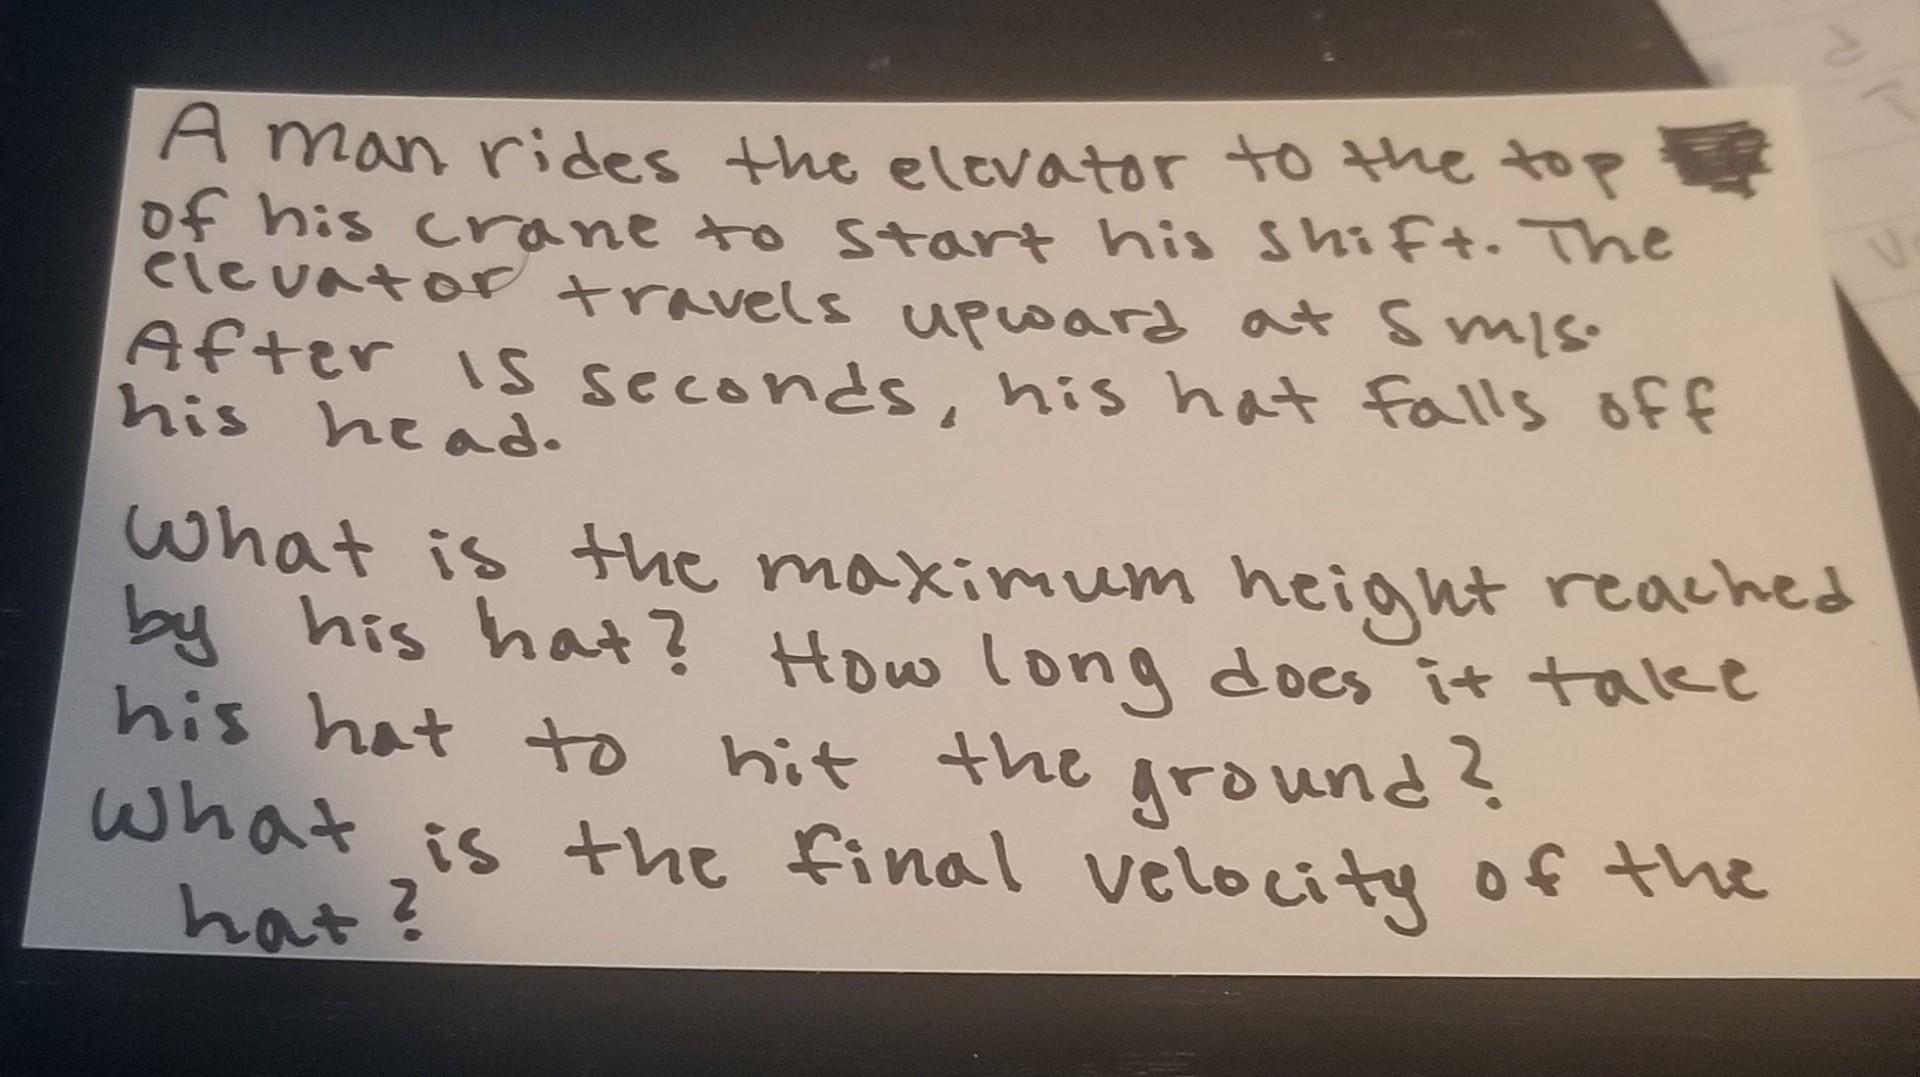 A man rides the elevator to the top
of his crane to start his shift. The
elevator travels upward at 5 m/s.
After 15 seconds, his hat falls off
his head.
What is the maximum height reached
by his hat? How long does it take
his hat to hit the ground?
What is the final velocity of the
hat?